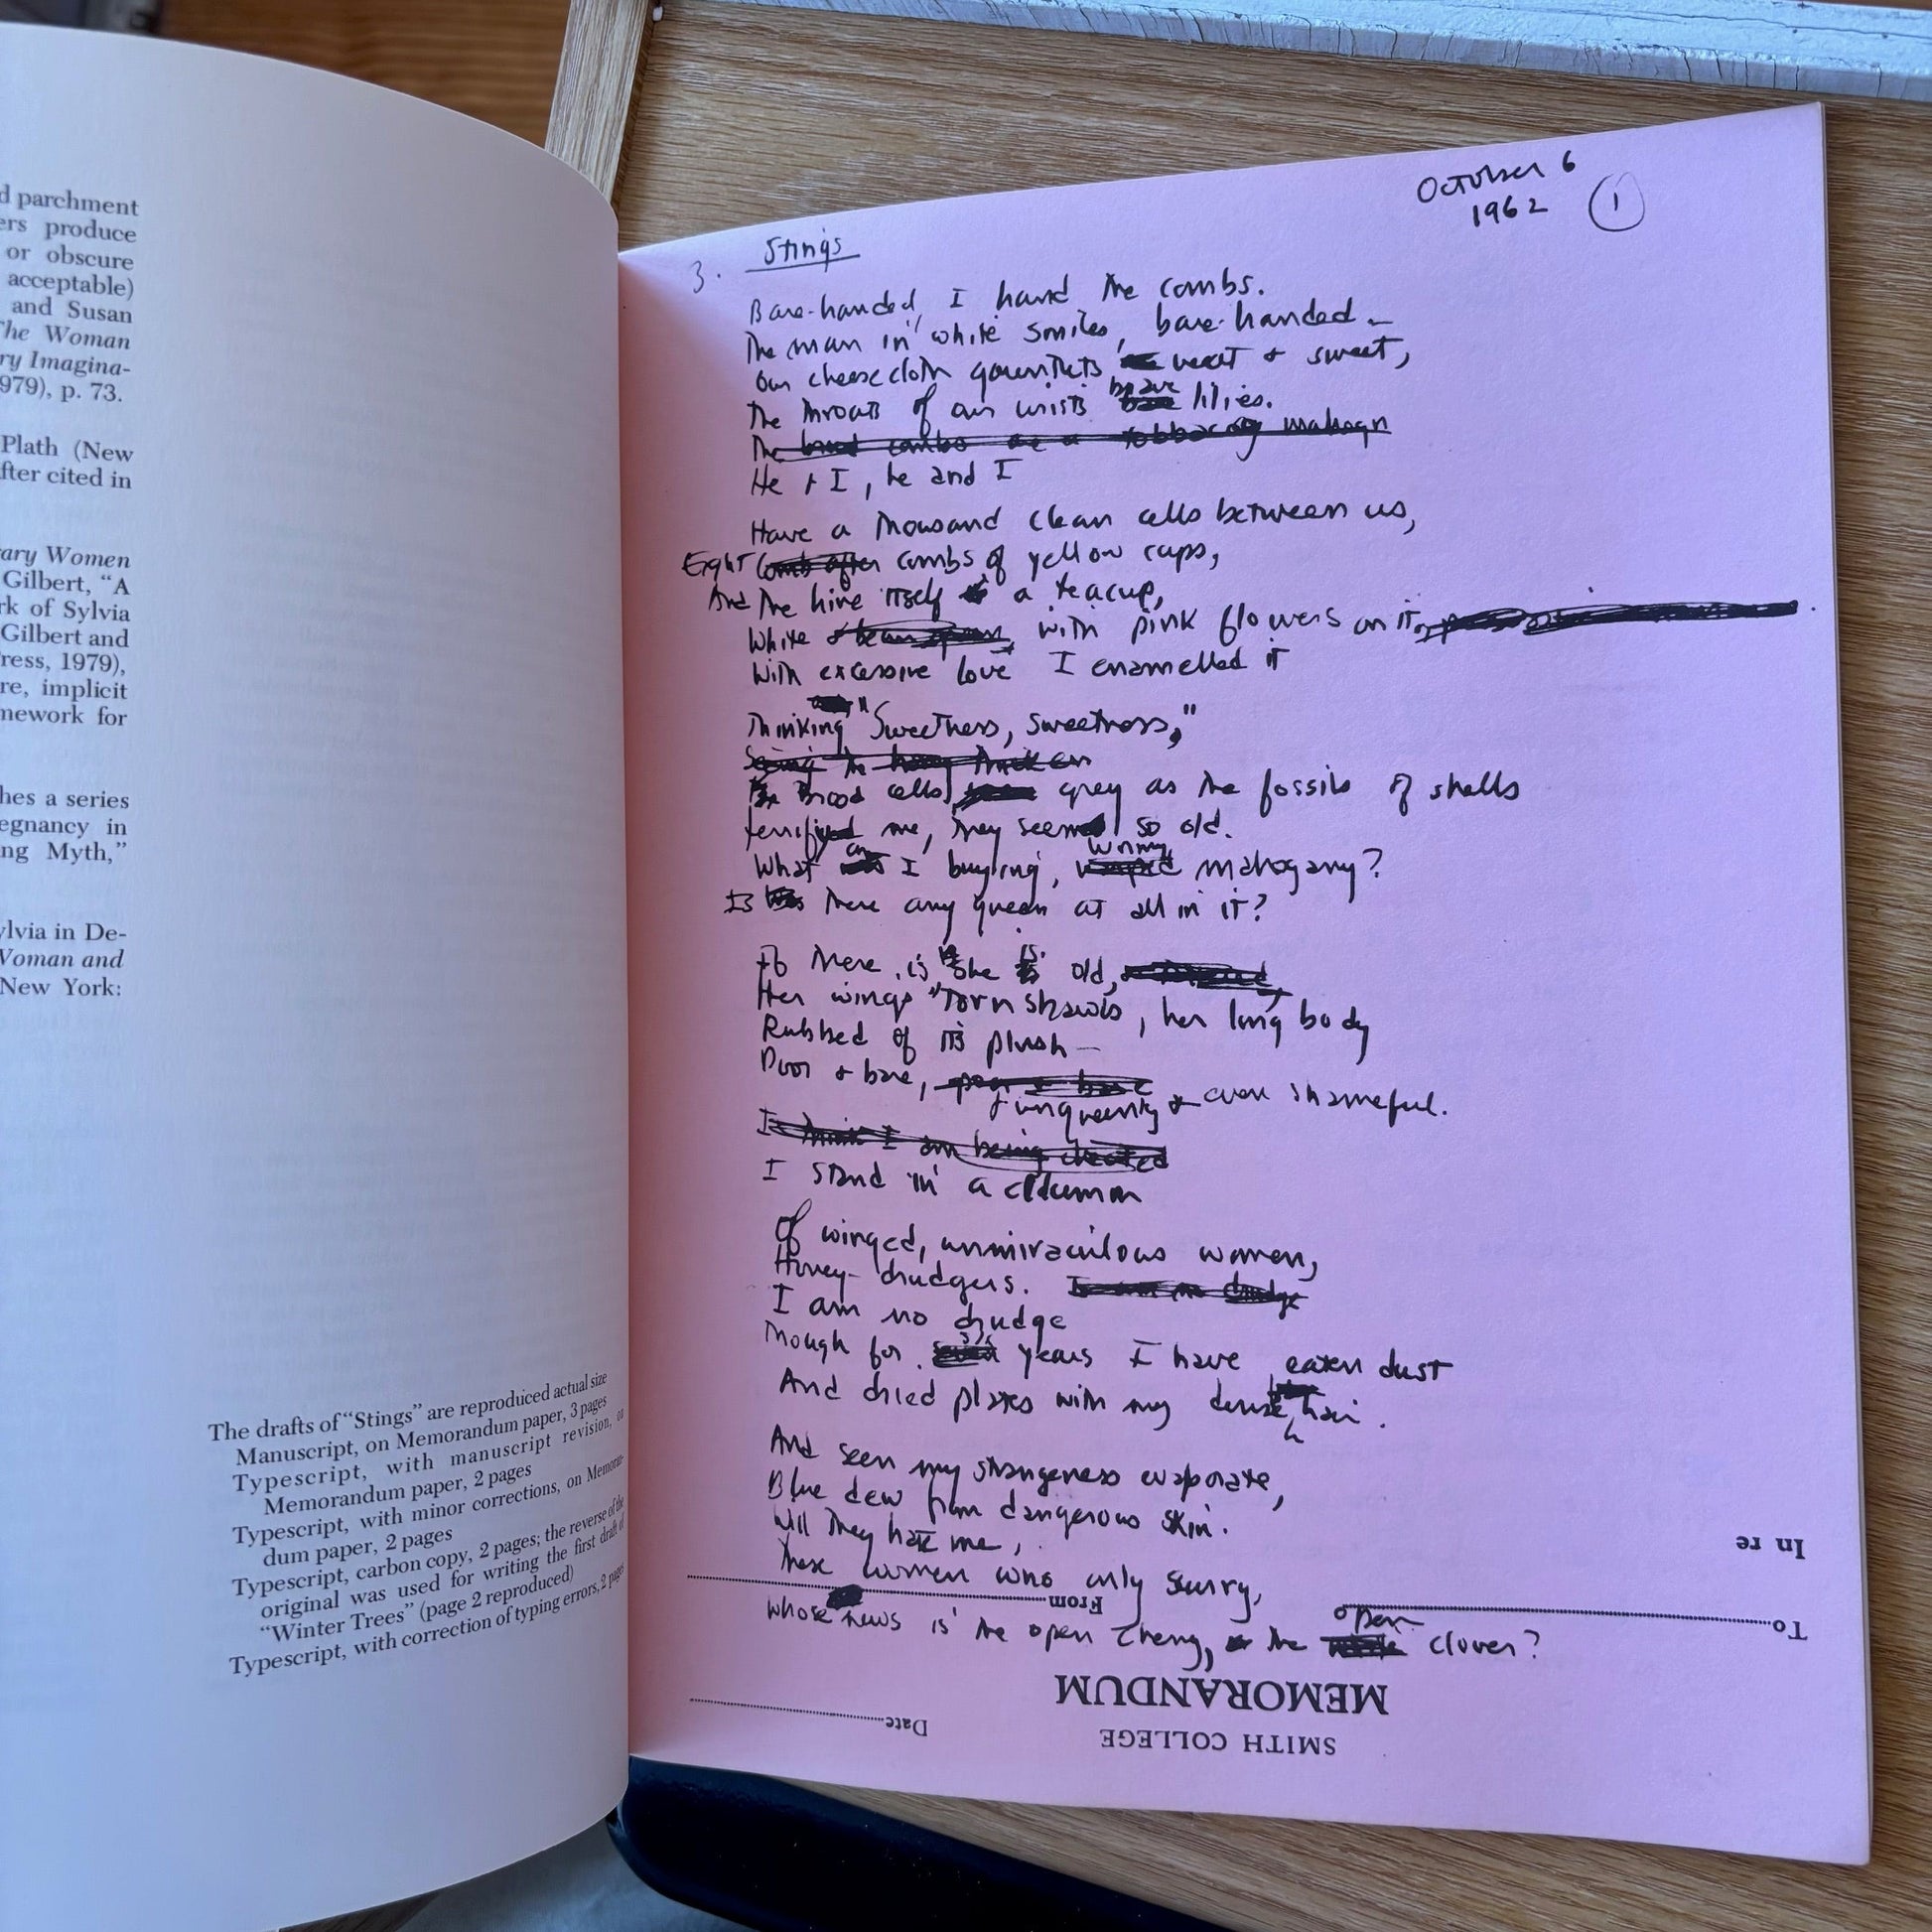 d parchment
ers produce
or obscure
acceptable)
and Susan
The Woman
ry Imagina-
979), p. 73.
Plath (New
fter cited in
rary Women
Gilbert, “A
rk of Sylvia
Gilbert and
ress, 1979),
re, implicit
mework for
hes a series
egnancy in
ng Myth,”
ylvia in De-
Woman and
New York:
The drafts of “Stings” are reproduced actual size
Manuscript, on Memorandum paper, 3 pages
Typescript, with manuscript revision, on
Memorandum paper, 2 pages
Typescript, with minor corrections, on Memoran-
dum paper, 2 pages
Typescript, carbon copy, 2 pages; the reverse of the
original was used for writing the first draft of
“Winter Trees” (page 2 reproduced)
Typescript, with correction of typing errors, 2 pages
October 6
1962 1
3. Stings
Bare-handed, I hand the combs.
The man in white smiles, bare-handed -
Our cheesecloth gauntlets neat + sweet,
The throats of our wrists brave lilies.
The brood combs are a robbery mahogn
He + I, he and I
Have a thousand clean cells between us,
Eight Comb after combs of yellow cups,
And the hive itself a teacup,
White with pink flowers on it,
With excessive love I enamelled it
Thinking "Sweetness, sweetness,"
Seeing the honey thicken
Brood cells grey as the fossils of shells
terrify me, they seem so old.
What am I buying, wormy mahogany?
Is there any queen at all in it?
If there is she is old,
Her wings torn shawls, her long body
Rubbed of its plush—
Poor + bare, poor + bare
+ unqueenly + even shameful.
I think I am being cheated
I stand in a column
Of winged, unmiraculous women,
Honey-drudgers. I am no drudge
I am no drudge
Though for years I have eaten dust
And dried plates with my dense hair.
And seen my strangeness evaporate,
Blue dew from dangerous skin.
Will they hate me,
These women who only scurry,
Whose news is the open cherry, the open clover?
In re
To
From
MEMORANDUM
SMITH COLLEGE
Date